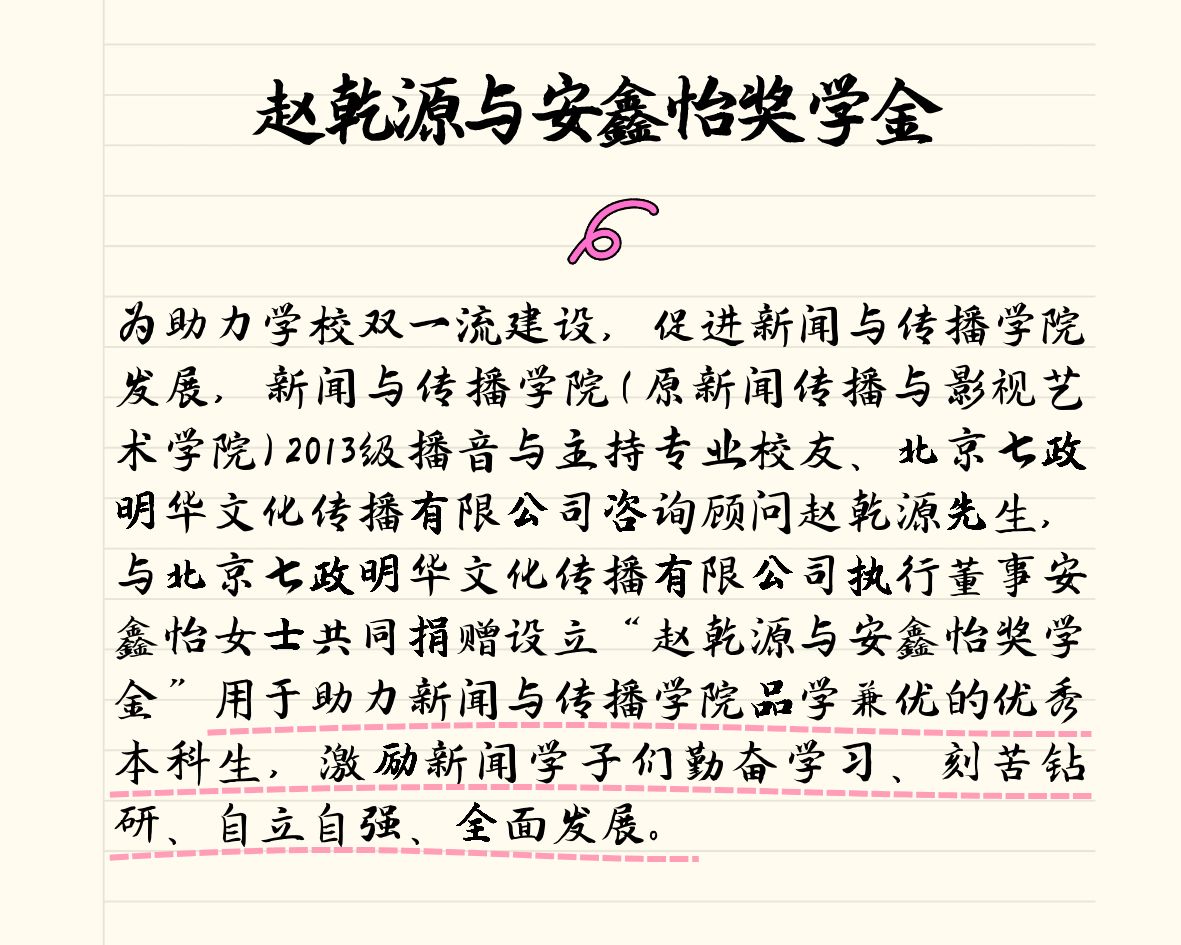 赵乾源与安鑫怡奖学金
为助力学校双一流建设，促进新闻与传播学院
发展，新闻与传播学院（原新闻传播与影视艺
术学院）2013级播音与主持专业校友、北京七政
明华文化传播有限公司咨询顾问赵乾源先生，
与北京七政明华文化传播有限公司执行董事安
鑫怡女士共同捐赠设立“赵乾源与安鑫怡奖学
金”用于助力新闻与传播学院品学兼优的优秀
本科生，激励新闻学子们勤奋学习、刻苦钻
研、自立自强、全面发展。